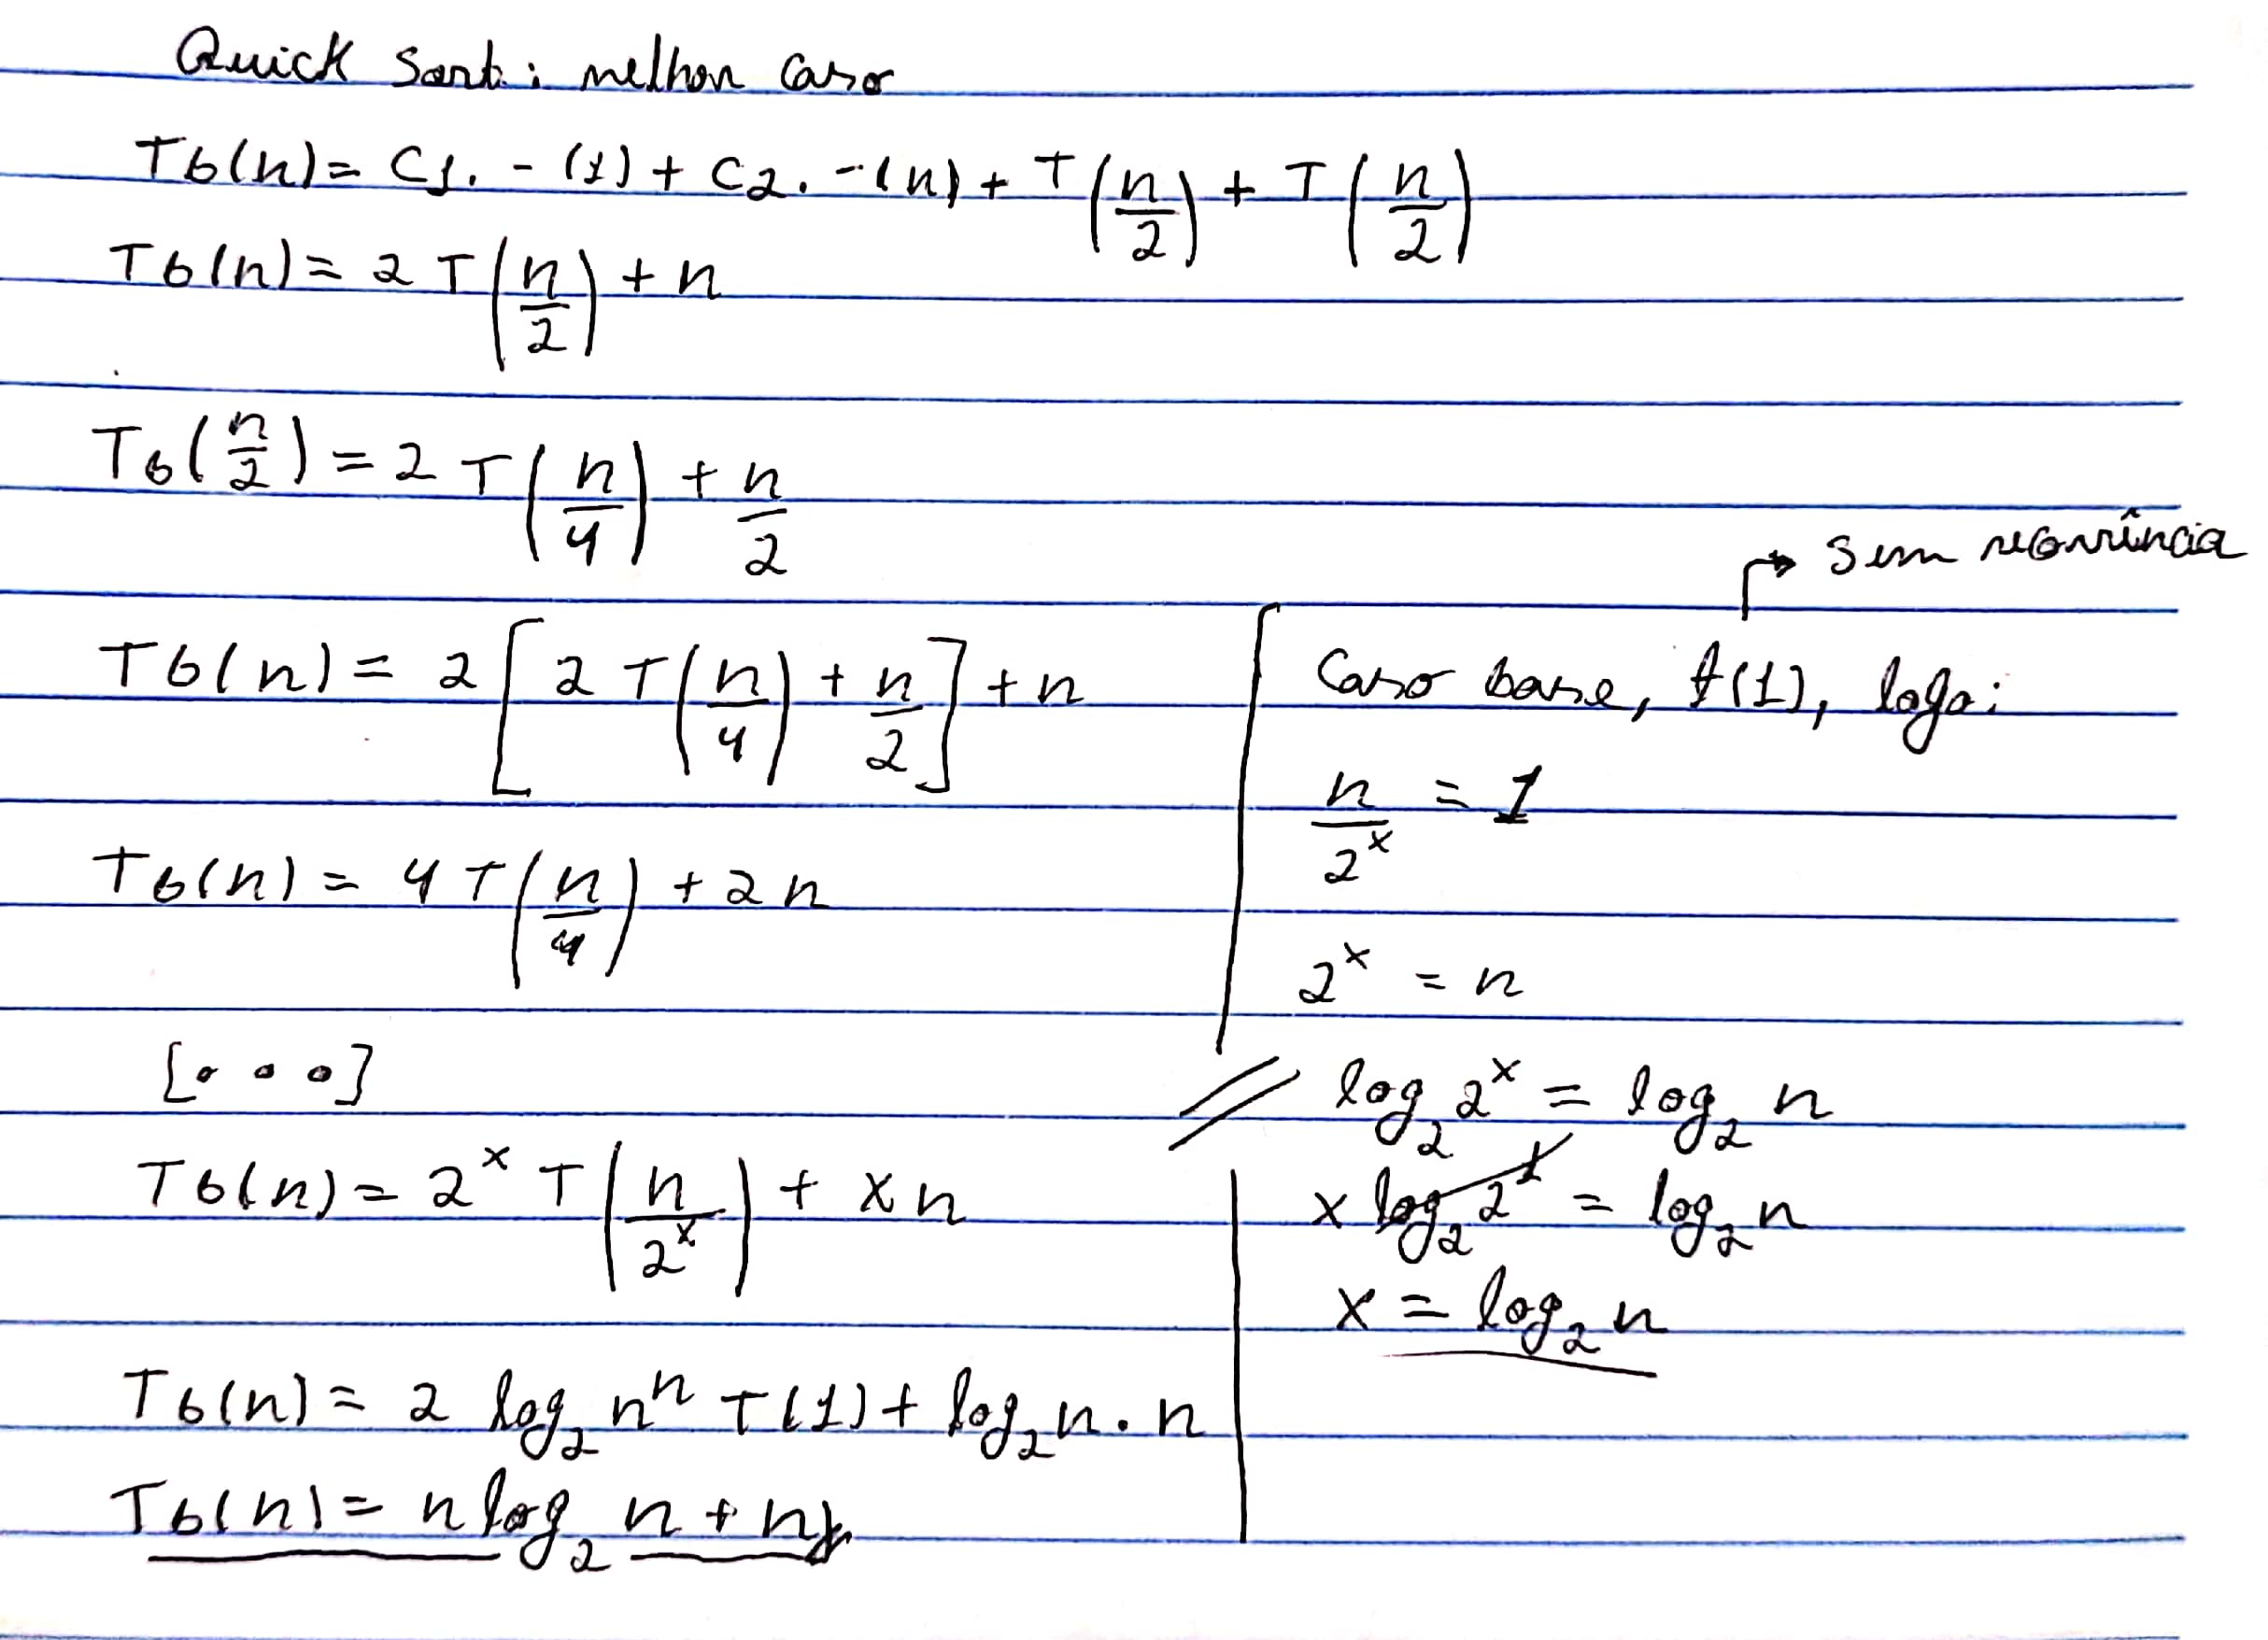 Quick Sort: melhor caso
Tb(n) = C1. - (1) + C2. - (n) + T(n/2) + T(n/2)
Tb(n) = 2T(n/2) + n
Tb(n/2) = 2T(n/4) + n/2
Tb(n) = 2[2T(n/4) + n/2] + n
Tb(n) = 4T(n/4) + 2n
[...]
Tb(n) = 2^x T(n/2^x) + xn
Tb(n) = 2 log₂ n^n T(1) + log₂ n . n
Tb(n) = n log₂ n + n
→ sem recorrência
Caso base, t(1), logo:
n/2^x = 1
2^x = n
// log₂ 2^x = log₂ n
x log₂ 2^1 = log₂ n
x = log₂ n